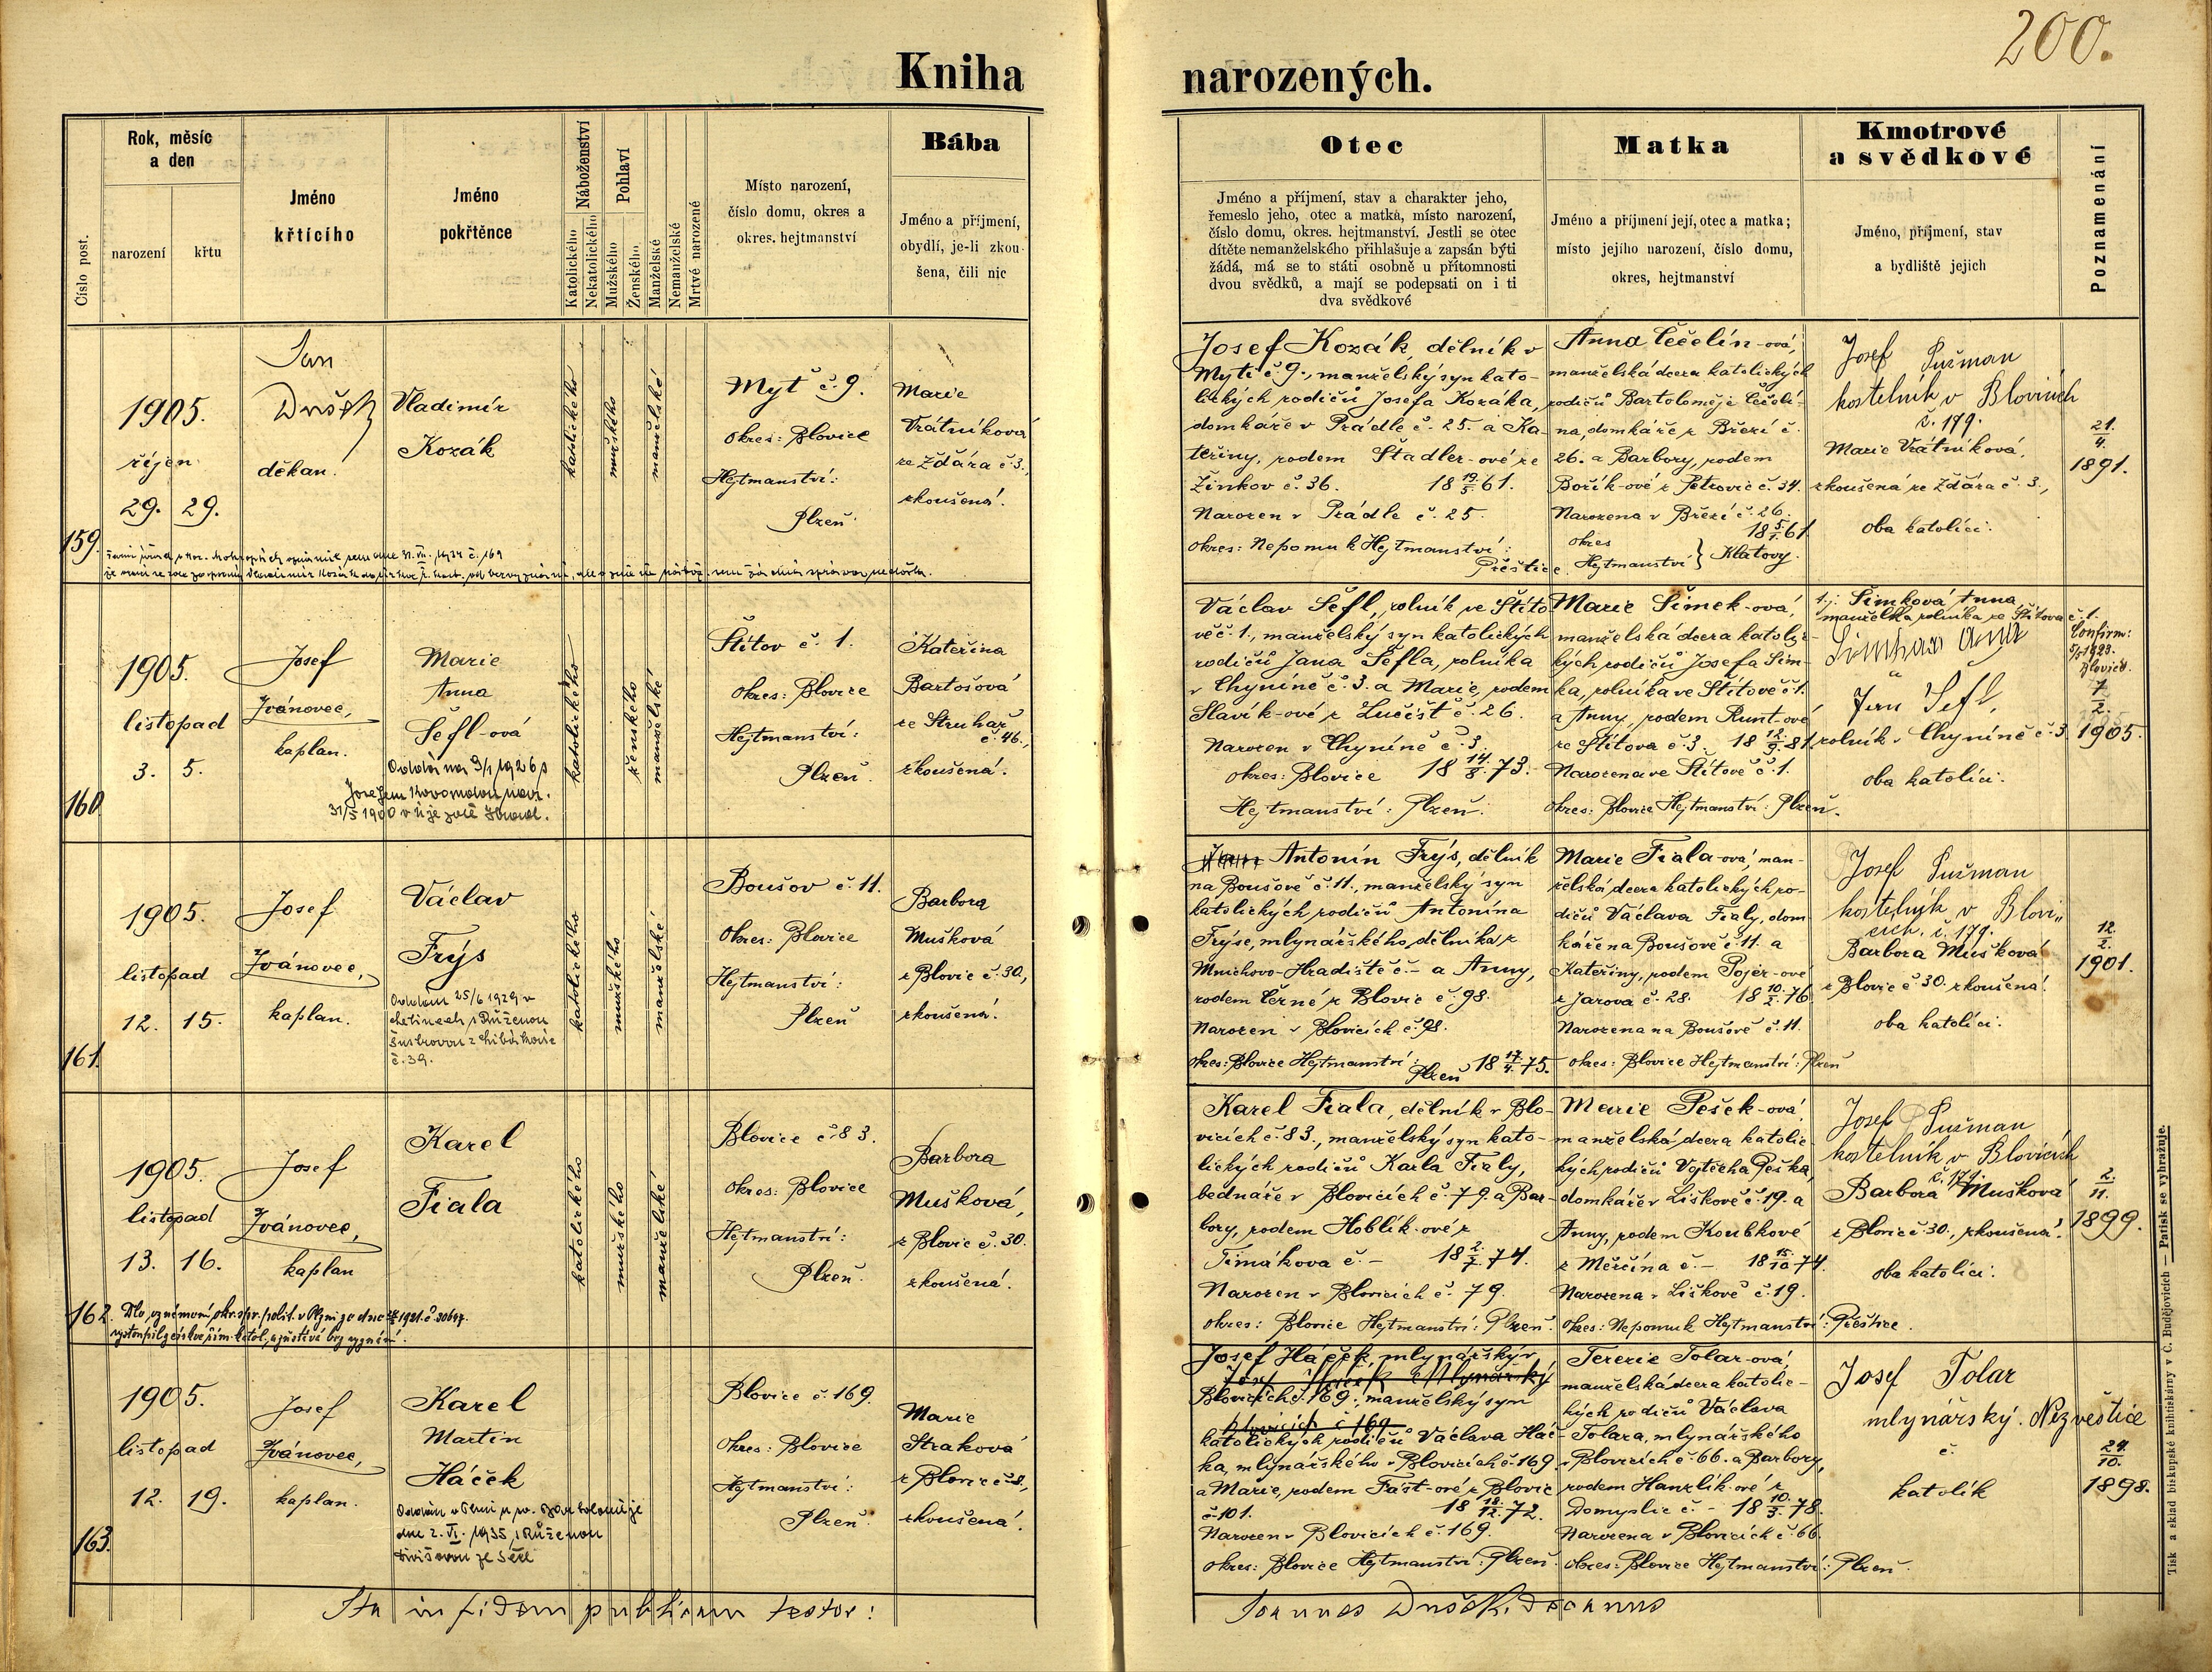 200.
Kniha narozených.
Číslo post.
Rok, měsíc
a den
narození
křtu
Jméno
křtícího
Jméno
pokřtěnce
Náboženství
Katolického
Nekatolického
Pohlaví
Mužského
Ženského
Manželské
Nemanželské
Mrtvé narozené
Místo narození,
číslo domu, okres a
okres. hejtmanství
Bába
Jméno a příjmení,
obydlí, je-li zkou-
šena, čili nic
Otec
Jméno a příjmení, stav a charakter jeho,
řemeslo jeho, otec a matka, místo narození,
číslo domu, okres. hejtmanství. Jestli se otec
dítěte nemanželského přihlašuje a zapsán býti
žádá, má se to státi osobně u přítomnosti
dvou svědků, a mají se podepsati on i ti
dva svědkové
Matka
Jméno a příjmení její, otec a matka;
místo jejího narození, číslo domu,
okres, hejtmanství
Kmotrové
a svědkové
Jméno, příjmení, stav
a bydliště jejich
Poznamenání
159.
1905.
říjen
29. 29.
Jan
Dušek
děkan.
Vladimír
Kozák
katolického
mužského
manželské
Myť č. 9.
Okres: Blovice
Hejtmanství:
Plzeň.
Marie
Vrátníková
ze Ždára č. 3.,
zkoušená.
Josef Kozák, dělník v
Myti č. 9., manželský syn kato-
lických rodičů Josefa Kozáka,
domkáře v Prádle č. 25. a Ka-
teřiny, rodem Štadler-ové ze
Žinkov č. 36. 18 19/5 61.
Narozen v Prádle č. 25.
okres: Nepomuk Hejtmanství:
Přeštice.
Anna Čečelín-ová,
manželská dcera katolických
rodičů Bartoloměje Čečelí-
na, domkáře z Březí č.
26. a Barbory, rodem
Bořík-ové z Petrovic č. 34.
Narozena v Březí č. 26.
18 5/1. 61
okres
Hejtmanství } Klatovy.
Josef Pušman
kostelník v Blovicích
č. 179.
Marie Vrátníková,
zkoušená ze Ždára č. 3.,
oba katolíci.
21.
4.
1891.
160.
1905.
listopad
3. 5.
Josef
Ivánovec,
kaplan.
Marie
Anna
Šefl-ová
Oddána 9/1 1926 s
Josefem
31/5 1900 v
katolického
ženského
manželské
Štítov č. 1.
Okres: Blovice
Hejtmanství:
Plzeň.
Kateřina
Bartošová
ze Struhař
č. 46.,
zkoušená.
Václav Šefl, rolník ve Štíto-
vě č. 1., manželský syn katolických
rodičů Jana Šefla, rolníka
v Chyníně č. 3. a Marie, rodem
Slavík-ové z Lučišť č. 26.
Narozen v Chyníně č. 3.
okres: Blovice 18 14/8. 73.
Hejtmanství: Plzeň.
Marie Šimek-ová,
manželská dcera katolic-
kých rodičů Josefa Šim-
ka, rolníka ve Štítově č. 1.
a Anny, rodem Runt-ové
ze Štítova č. 3. 18 12/9. 81.
Narozena ve Štítově č. 1.
okres: Blovice Hejtmanství: Plzeň.
t. j. Šimková Anna,
manželka rolníka ze Štítova č. 1.
Jan Šefl,
rolník v Chyníně č. 3
oba katolíci.
Confirm:
5/5 1923.
Blovice.
7
2.
1905.
161.
1905.
listopad
12. 15.
Josef
Ivánovec,
kaplan.
Václav
Frýs
Oddán 25/6 1929 v
Letinech s Růženou
č. 39.
katolického
mužského
manželské
Boušov č. 11.
Okres: Blovice
Hejtmanství:
Plzeň
Barbora
Mušková
z Blovic č. 30.,
zkoušená.
Antonín Frýs, dělník
na Boušově č. 11., manželský syn
katolických rodičů Antonína
Frýse, mlynářského dělníka z
Mnichovo-Hradiště č. – a Anny,
rodem Černé z Blovic č. 98.
Narozen v Blovicích č. 98.
okres: Blovice Hejtmanství:
Plzeň 18 17/4. 75.
Marie Fiala-ová, man-
želská dcera katolických ro-
dičů Václava Fialy, dom-
káře na Boušově č. 11. a
Kateřiny, rodem Pojer-ové
z Jarova č. 28. 18 10/2. 76.
Narozena na Boušově č. 11.
okres: Blovice Hejtmanství: Plzeň
Josef Pušman
kostelník v Blovi„
cích. č. 179.
Barbora Mušková
z Blovic č 30. zkoušená.
oba katolíci.
12.
2.
1901.
162.
1905.
listopad
13. 16.
Josef
Ivánovec,
kaplan
Karel
Fiala
katolického
mužského
manželské
Blovice č. 83.
Okres: Blovice
Hejtmanství:
Plzeň.
Barbora
Mušková,
z Blovic č. 30.
zkoušená.
Karel Fiala, dělník v Blo-
vicích č. 83., manželský syn kato-
lických rodičů Karla Fialy,
bednáře v Blovicích č. 79. a Bar-
bory, rodem Hoblík-ové z
Timákova č. – 18 2/7. 74.
Narozen v Blovicích č. 79.
okres: Blovice Hejtmanství: Plzeň.
Marie Pešek-ová
manželská dcera katolic-
kých rodičů Vojtěcha Peška,
domkáře v Liškově č. 19. a
Anny, rodem Koubkové
z Měčína č. – 18 15/10 74.
Narozena v Liškově č. 19.
okres: Nepomuk Hejtmanství: Přeštice.
Josef Pušman
kostelník v Blovicích
č. 179.
Barbora Mušková
z Blovic č 30., zkoušená.
oba katolíci.
2.
11.
1899.
163.
1905.
listopad
12. 19.
Josef
Ivánovec,
kaplan.
Karel
Martin
Háček
Oddán v Plzni u sv. Bartoloměje
dne 2. VI. 1935 s Růženou
Divišovou
mužského
manželské
Blovice č. 169.
Okres: Blovice
Hejtmanství:
Plzeň.
Marie
Straková
z Blovic č. 8.,
zkoušená.
Josef Háček, mlynářský v
Blovicích č. 169., manželský syn
Blovicích č 169
katolických rodičů Václava Háč-
ka, mlynářského v Blovicích č. 169.
a Marie, rodem Fášt-ové z Blovic
č. 101. 18 18/12. 72.
Narozen v Blovicích č. 169.
okres: Blovice Hejtmanství: Plzeň.
Terezie Tolar-ová,
manželská dcera katolic-
kých rodičů Václava
Tolara, mlynářského
v Blovicích č. 66. a Barbory,
rodem Hanzlík-ové z
Domyslic č. – 18 10/3. 78.
Narozena v Blovicích č. 66.
okres: Blovice Hejtmanství: Plzeň.
Josef Tolar
mlynářský. Nezvěstice
č.
katolík
24.
10.
1898.
Ita in fidem publicam testor:
Joannes Dušek, decanus
Tisk a sklad biskupské knihtiskárny v Č. Budějovicích — Patisk se vyhražuje.